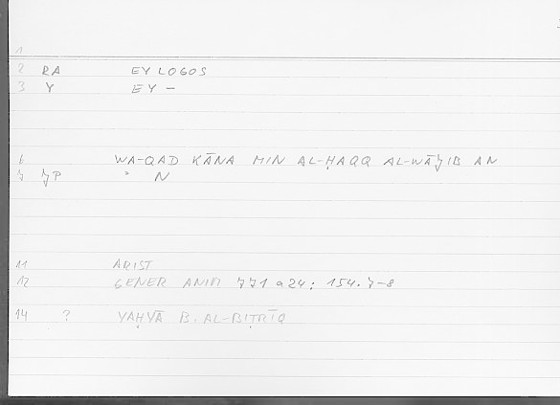 1
2 RA EYLOGOS
3 Y EY –
6 WA-QAD KĀNA MIN AL-ḤAQQ AL-WĀJIB AN
7 JP " N
11 ARIST
12 GENER ANIM 771 a24: 154.7-8
14 ? YAḤYĀ B. AL-BIṬRĪQ